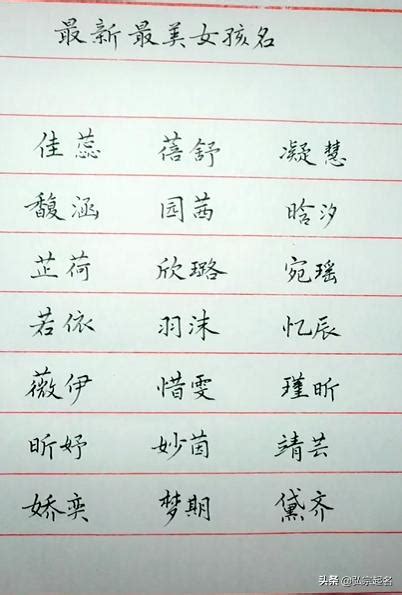 最新最美女孩名
佳蕊 蓓舒 凝慧
馥涵 园茜 晗汐
芷荷 欣璐 宛瑶
若依 羽沫 忆辰
薇伊 惜雯 瑾昕
昕妤 妙茵 靖芸
娇奕 梦期 黛齐
头条 @弘宗起名